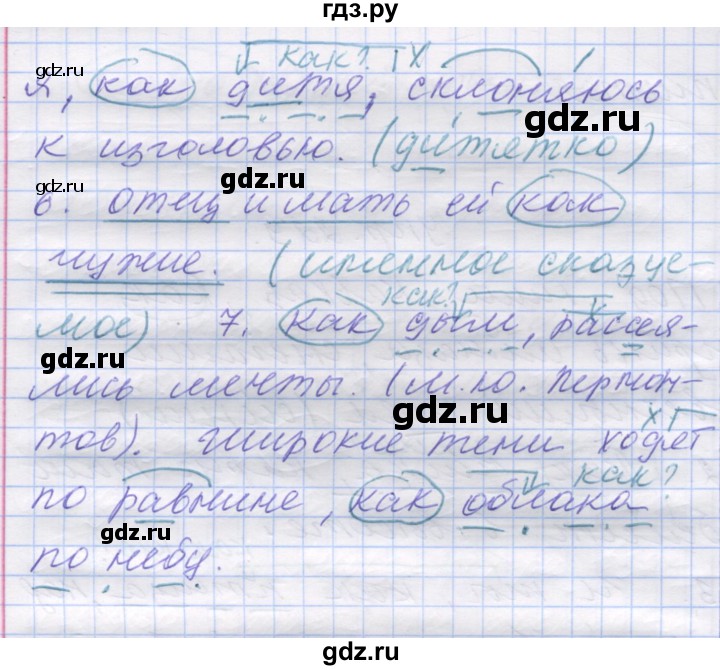 гдз.ру
как? х
gdz.ru
я, как дитя, склоняюсь
gdz.ru
к изголовью. (дитятко)
gdz.ru
gdz.ru
6. отец и мать ей как
чужие. (именное сказуе-
как? х
мое) 7. как дым, рассея-
gdz.ru
лись мечты. (М.Ю. Лермон-
gdz.ru
тов). Широкие тени ходят
х
по равнине, как облака
как?
gdz.ru
gdz.ru
по небу.
gdz.ru
gdz.ru